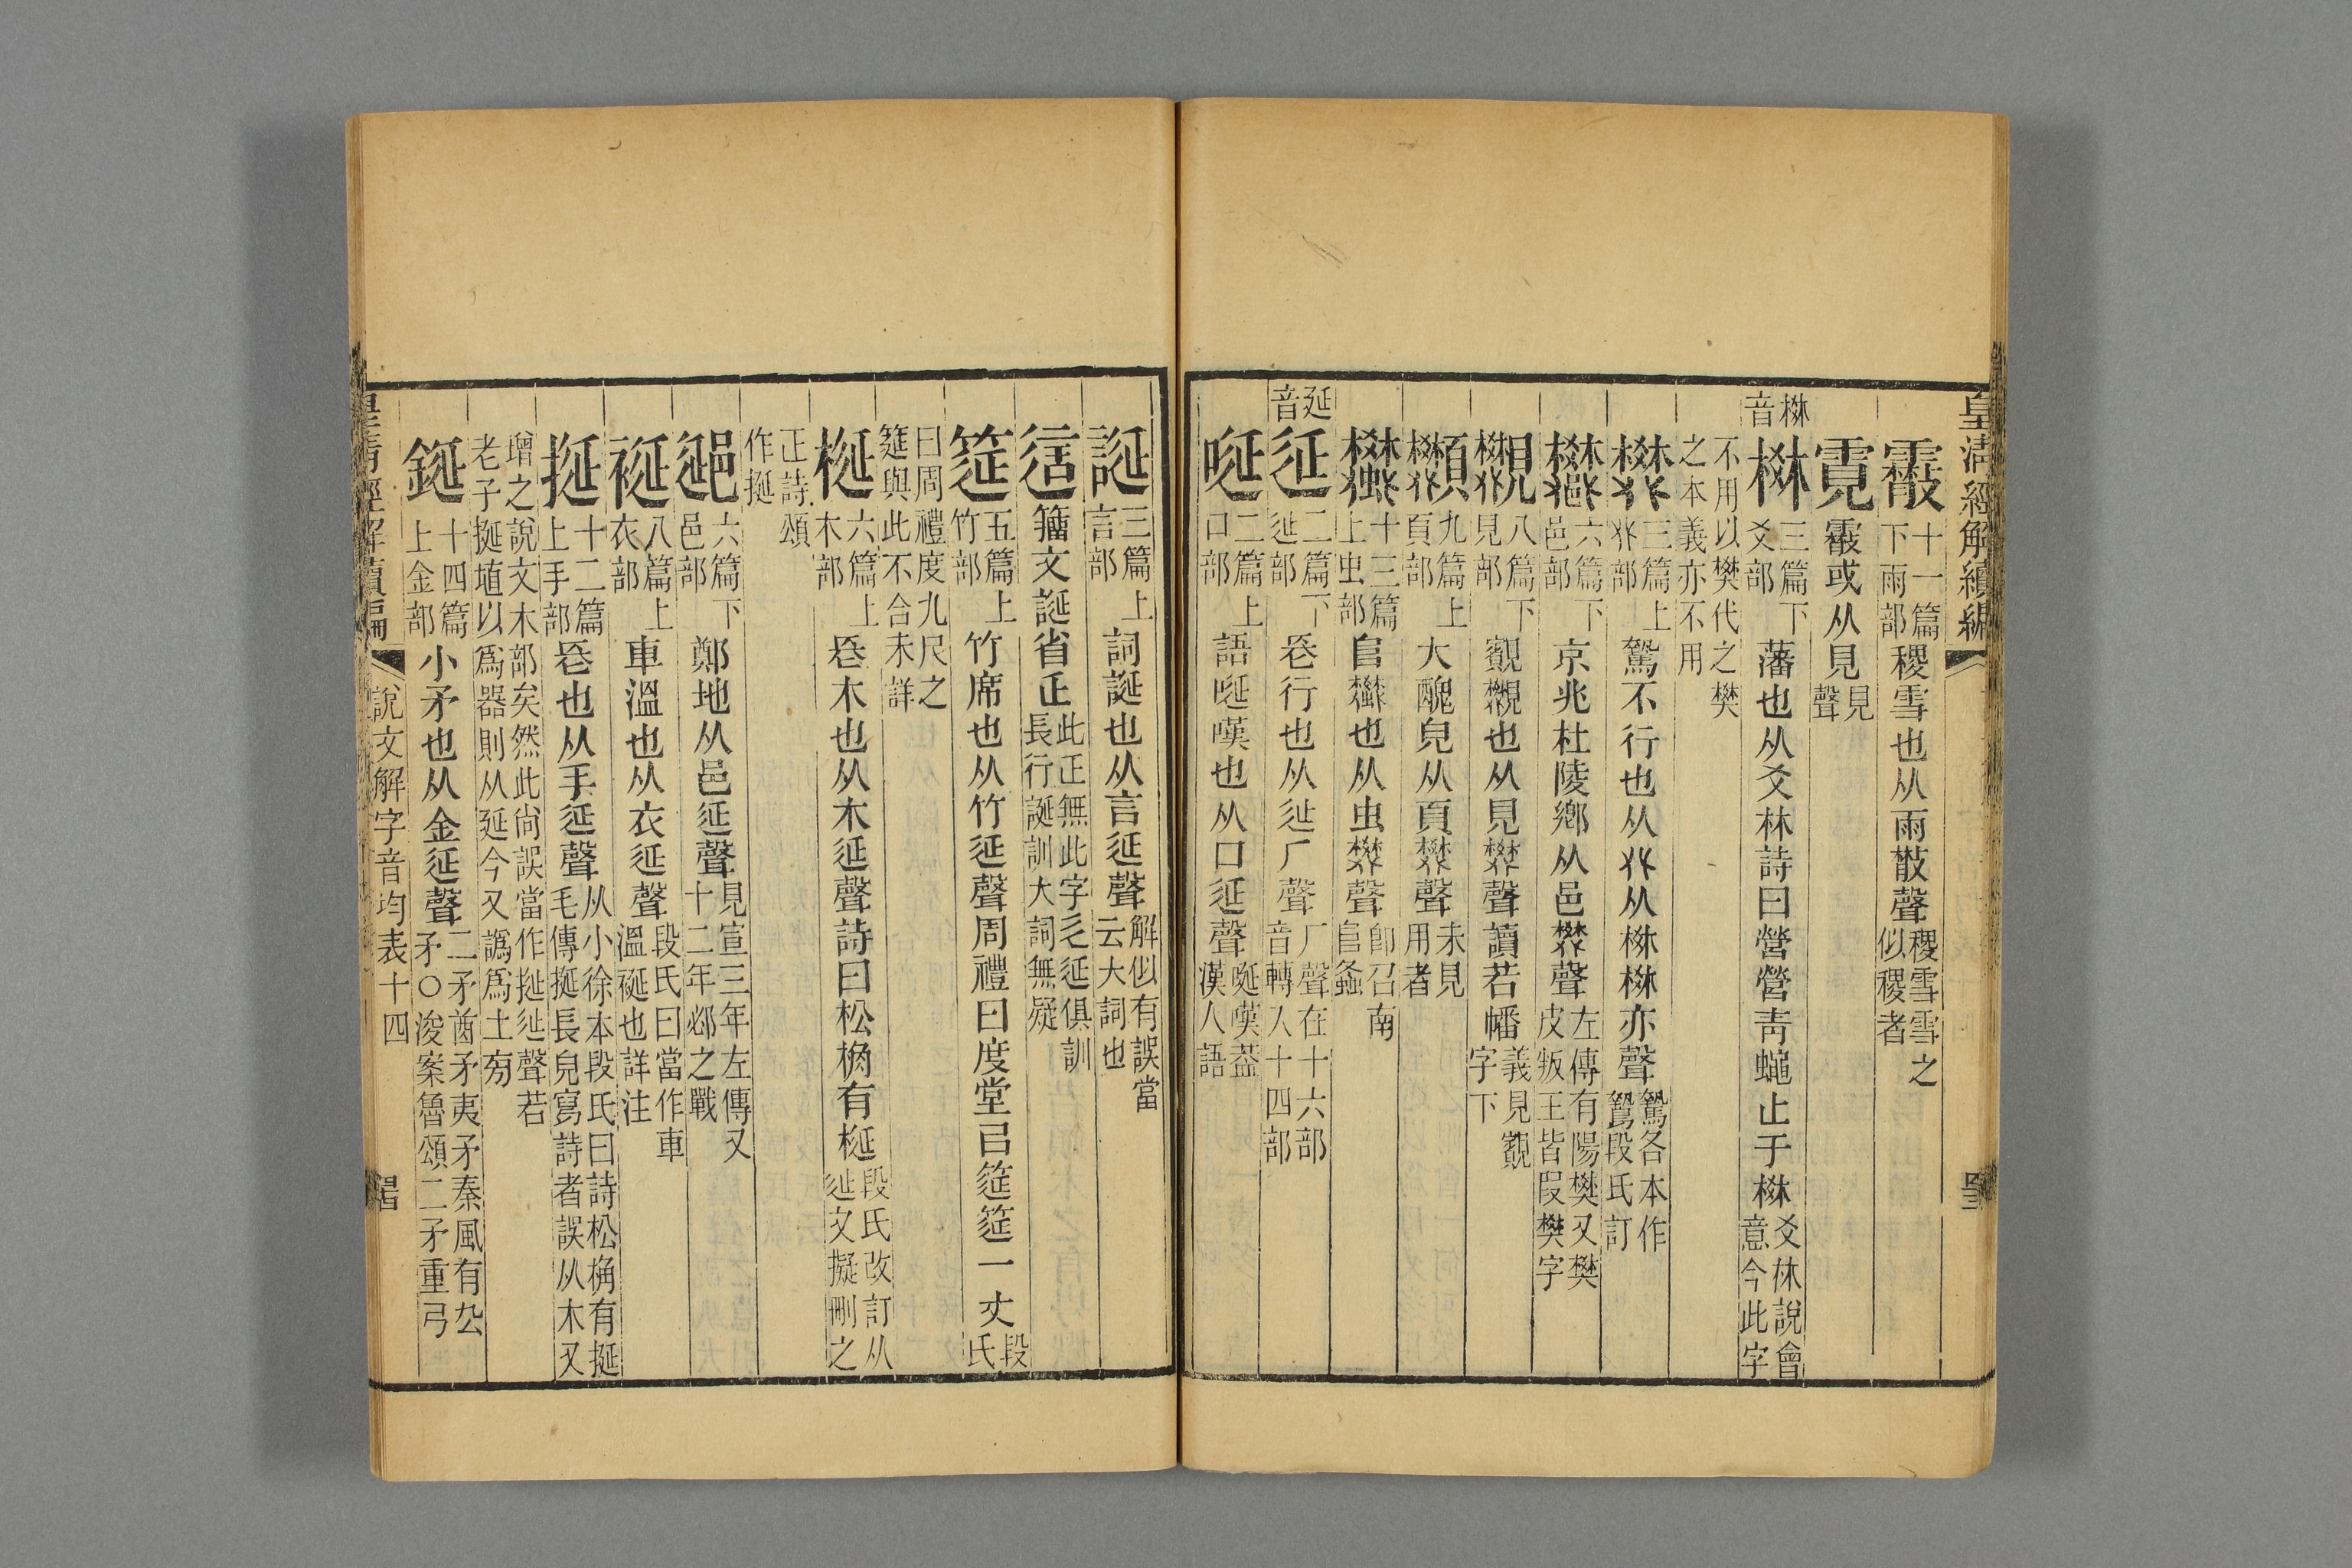 皇清經解續編
霰十一篇下雨部稷雪也从雨㪔聲稷雪雪之似稷者
霓霰或从見見聲
棥音棥三篇下爻部藩也从爻林詩曰營營靑蠅止于棥爻林說會意今此字
不用以樊代之樊之本義亦不用
樊三篇上𠬜部騺不行也从𠬜从棥棥亦聲騺各本作鷙段氏訂
六篇下邑部京兆杜陵鄉从邑樊聲左傳有陽樊又樊皮叛王皆叚樊字
八篇下見部覷覷也从見樊聲讀若幡義見覷字下
九篇上頁部大醜皃从頁樊聲未見用者
十三篇上虫部𨸏蠜也从虫樊聲卽召南𨸏螽
延音延二篇下㢟部長行也从㢟厂聲厂聲在十六部音轉入十四部
唌二篇上口部語唌嘆也从口延聲唌嘆葢漢人語
誕三篇上言部詞誕也从言延聲解似有誤當云大詞也
籒文誕省正此正無此字辵延俱訓長行誕訓大詞無疑
筵五篇上竹部竹席也从竹延聲周禮曰度堂㠯筵筵一丈段氏
曰周禮度九尺之筵與此不合未詳
梴六篇上木部長木也从木延聲詩曰松桷有梴段氏改訂从㢟文擬刪之
正詩頌作挻
郔六篇下邑部鄭地从邑延聲見宣三年左傳又十二年邲之戰
裋八篇上衣部車溫也从衣延聲段氏曰當作車溫裋也詳注
挻十二篇上手部長也从手延聲从小徐本段氏曰詩松桷有挻毛傳挻長皃寫詩者誤从木又
增之說文木部矣然此尙誤當作挻㢟聲若老子挻埴以爲器則从延今又譌爲土㫄
鋋十四篇上金部小矛也从金延聲二矛酋矛夷矛秦風有厹矛〇浚案魯頌二矛重弓
說文解字音均表十四